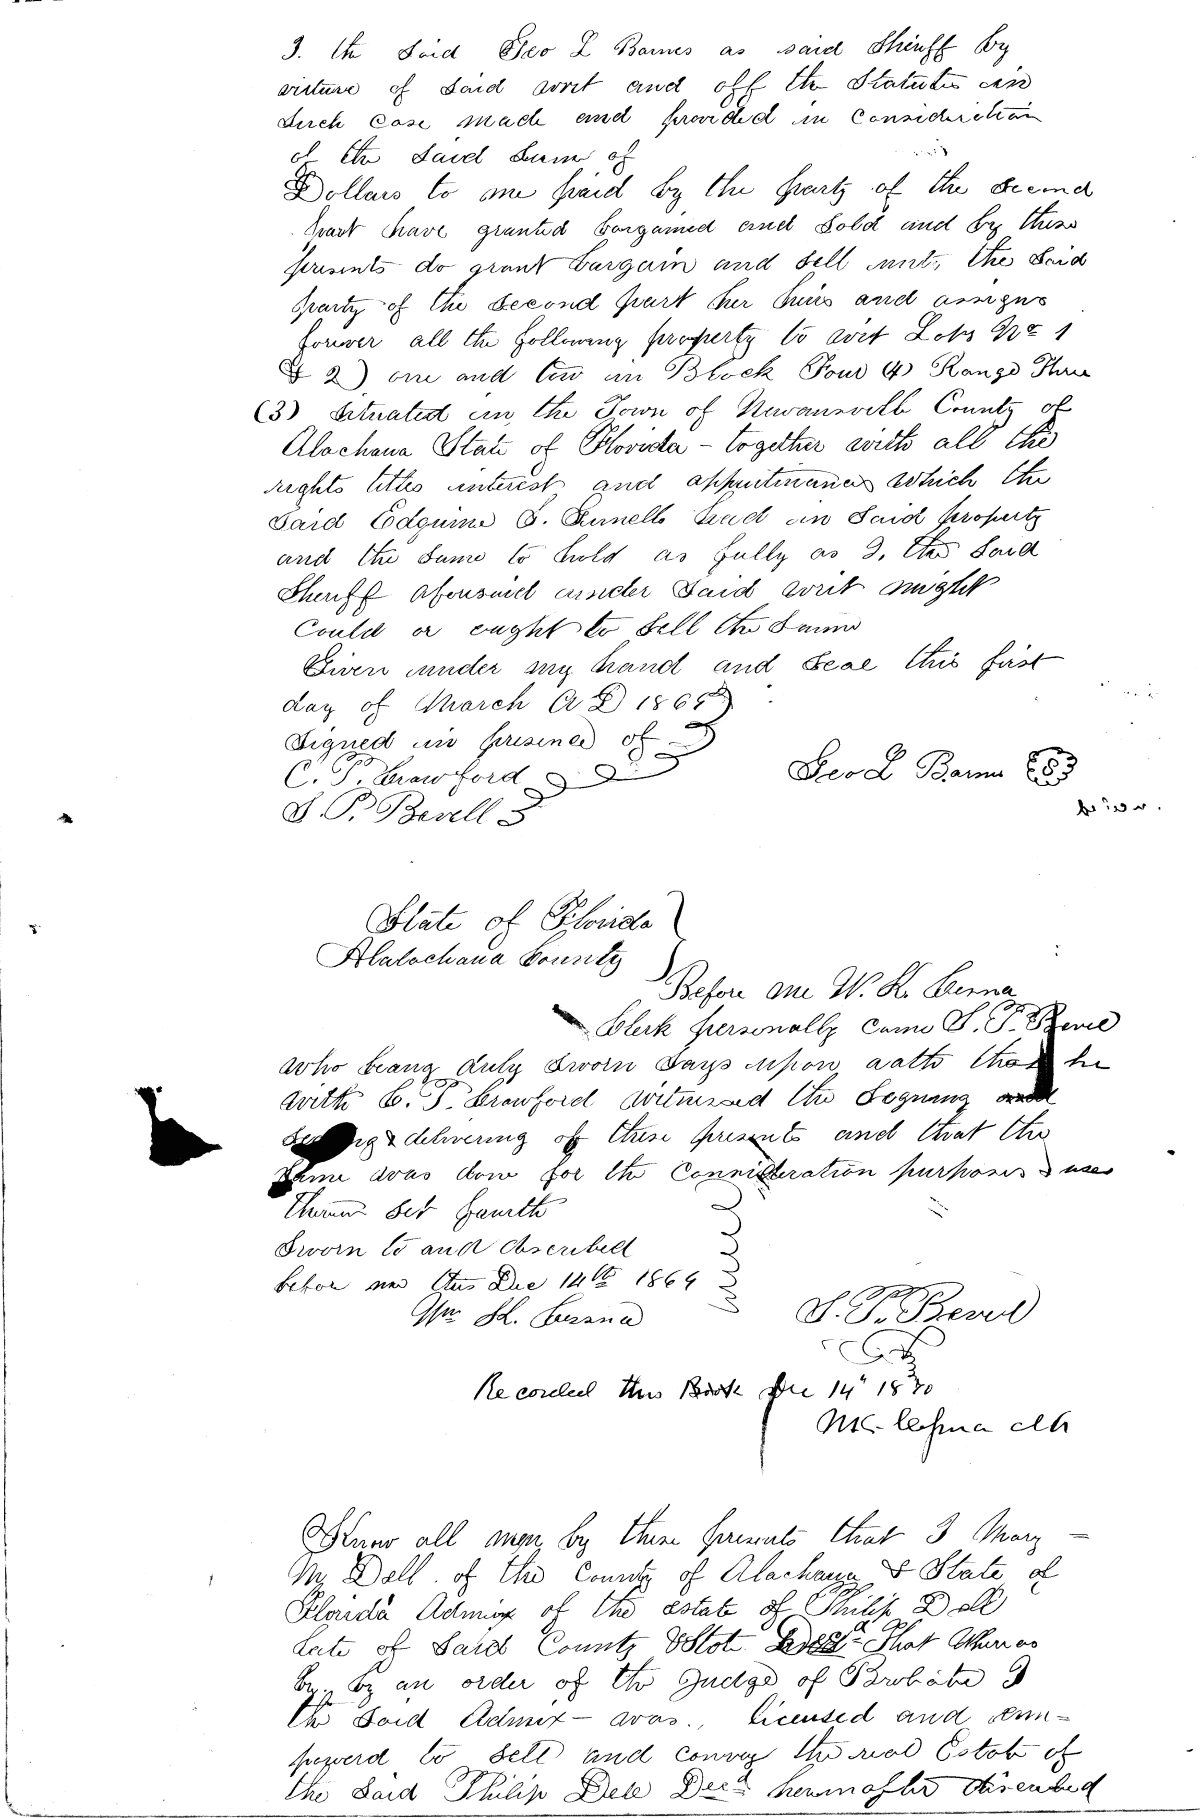 I. the Said Geo L Barnes as said Sheriff by
virture of Said writ and off the Statutes in
Such Case made and provided in Consideration
of the Said Sum of
Dollars to me paid by the party of the Second
part have granted bargained and Sold and by these
presents do grant bargain and Sell unto the Said
party of the Second part her heirs and assigns
forever all the following property to wit Lots No 1
& 2) one and two in Block Four (4) Range Three
(3) Situated in the Town of Newansville County of
Alachaua State of Florida - together with all the
rights titles interest and appurtinances which the
Said had in Said property
and the Same to hold as fully as I. the Said
Sheriff aforesaid under Said writ might
Could or ought to Sell the Same
Given under my hand and Seal this first
day of March A D 186
Signed in presence of
C. P. Crawford
S. P. Bevell
Geo L Barnes
State of Florida
Alalachaua County
Before me W. K. Cessna
Clerk personally came S. P. Bevil
who being duly Sworn Says upon oath that he
with C. P. Crawford witnessed the Signing and
& delivering of these presents and that the
Same was done for the Consideration purposes & uses
Therein Set fourth
Sworn to and discribed
before me this Dec 14th 1869
Wm K. Cessna
S. P. Bevil
Recorded this Book Dec 14" 1870
WK. Cessna Clk
Know all men by these presents that I Mary =
M Dell. of the County of Alachaua & State of
Florida Admix of the estate of Philip Dell
Late of Said County & State Decd - That Whereas
by. by an order of the Judge of Probate I
the Said Admix - was., licensed and em=
powerd to Sell and convey the real Estate of
the Said Philip Dell Decd hereinafter discribed